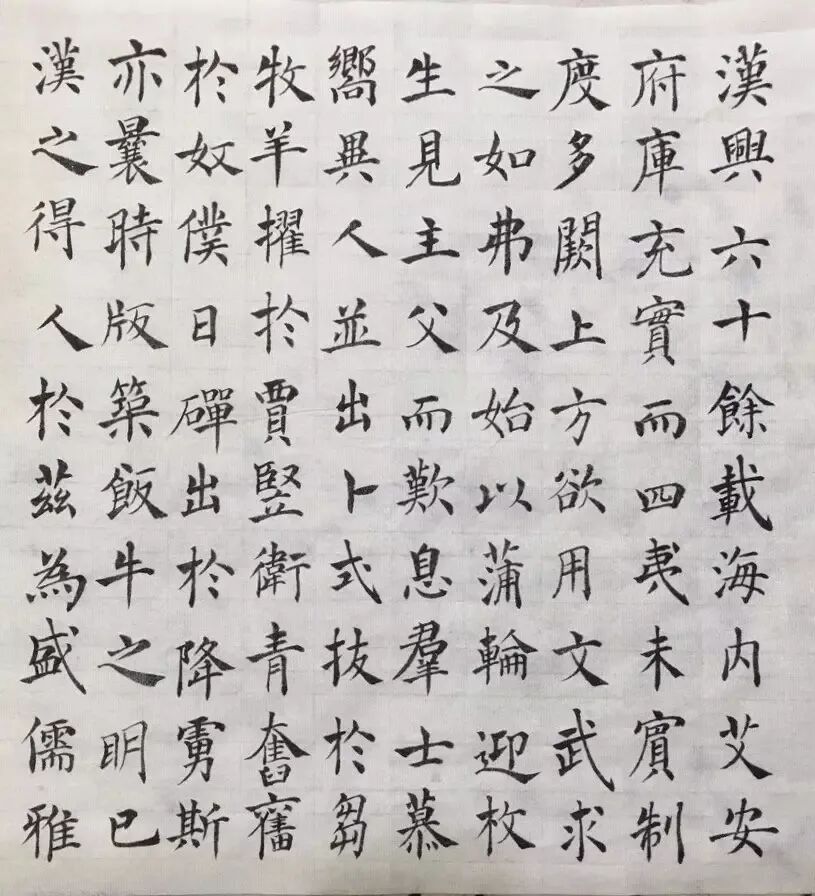 漢興六十餘載海内艾安
府庫充實而四夷未賓制
度多闕上方欲用文武求
之如弗及始以蒲輪迎枚
生見主父而歎息羣士慕
嚮異人並出卜式拔於芻
牧羊擢於賈竪衛青奮
於奴僕日磾出於降虜斯
亦曩時版築飯牛之眀已
漢之得人於茲為盛儒雅